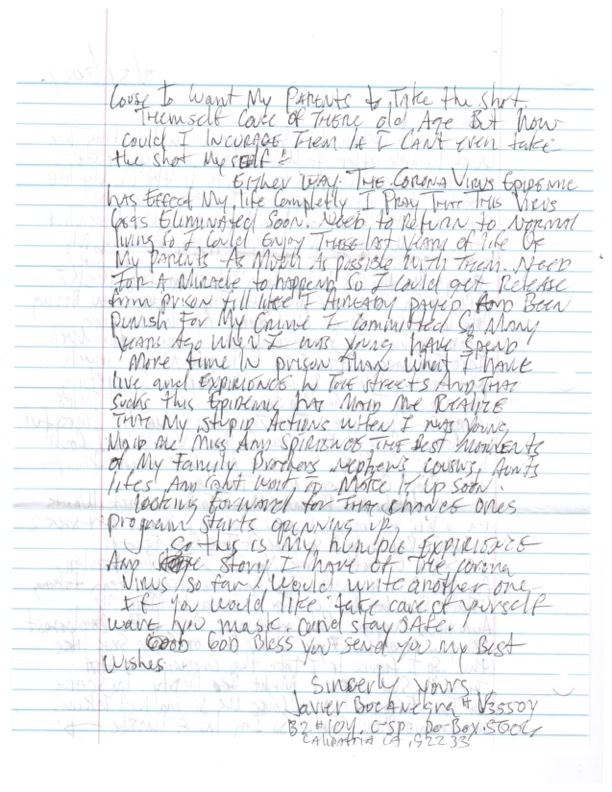 Couse I Want My PARENTS to Take the shot.
Themself Care of THERE old Age But how
could I INCURAGE THEM If I CAN'T even take
the shot myself!!
EITHER WAY. THE CORONA VIRUS EPIDEMIC
has EFFECT My life Completly I PRAY THAT THIS VIRUS
gets Eliminated Soon. Need to Return to NORMAL
living so I could Enjoy These last years of life OF
My parents As Much As possible with Them. Need
For A Miracle to happend so I could get Release
from prison till like I Already payed And BEEN
punish For My Crime I Committed So Many
years Ago when I was young have spend
More time In prison Than what I have
live and EXPIRIENCE IN THE streets And THAT
sucks this Epidemic hat MAID me REALIZE
THAT My stupid Actions when I was young,
Maid me Miss Any THE BEST MOMENTS
of My Family Brothers Nephews, cousins, Aunts
lifes And want to Make it up soon.
looking forward for THAT chance ones
program starts openning up.
So this is My humple EXPIRIENCE
And story I have of The corona
Virus so far would write another one
If you would like take care of yourself
ware you mask and stay safe.
GOD Bless you send you my Best
Wishes
Sincerly yours,
Javier Bocanegra # V35504
B2 #104. C-SP. Po-Box.5004
CALIPATRIA CA, 92233